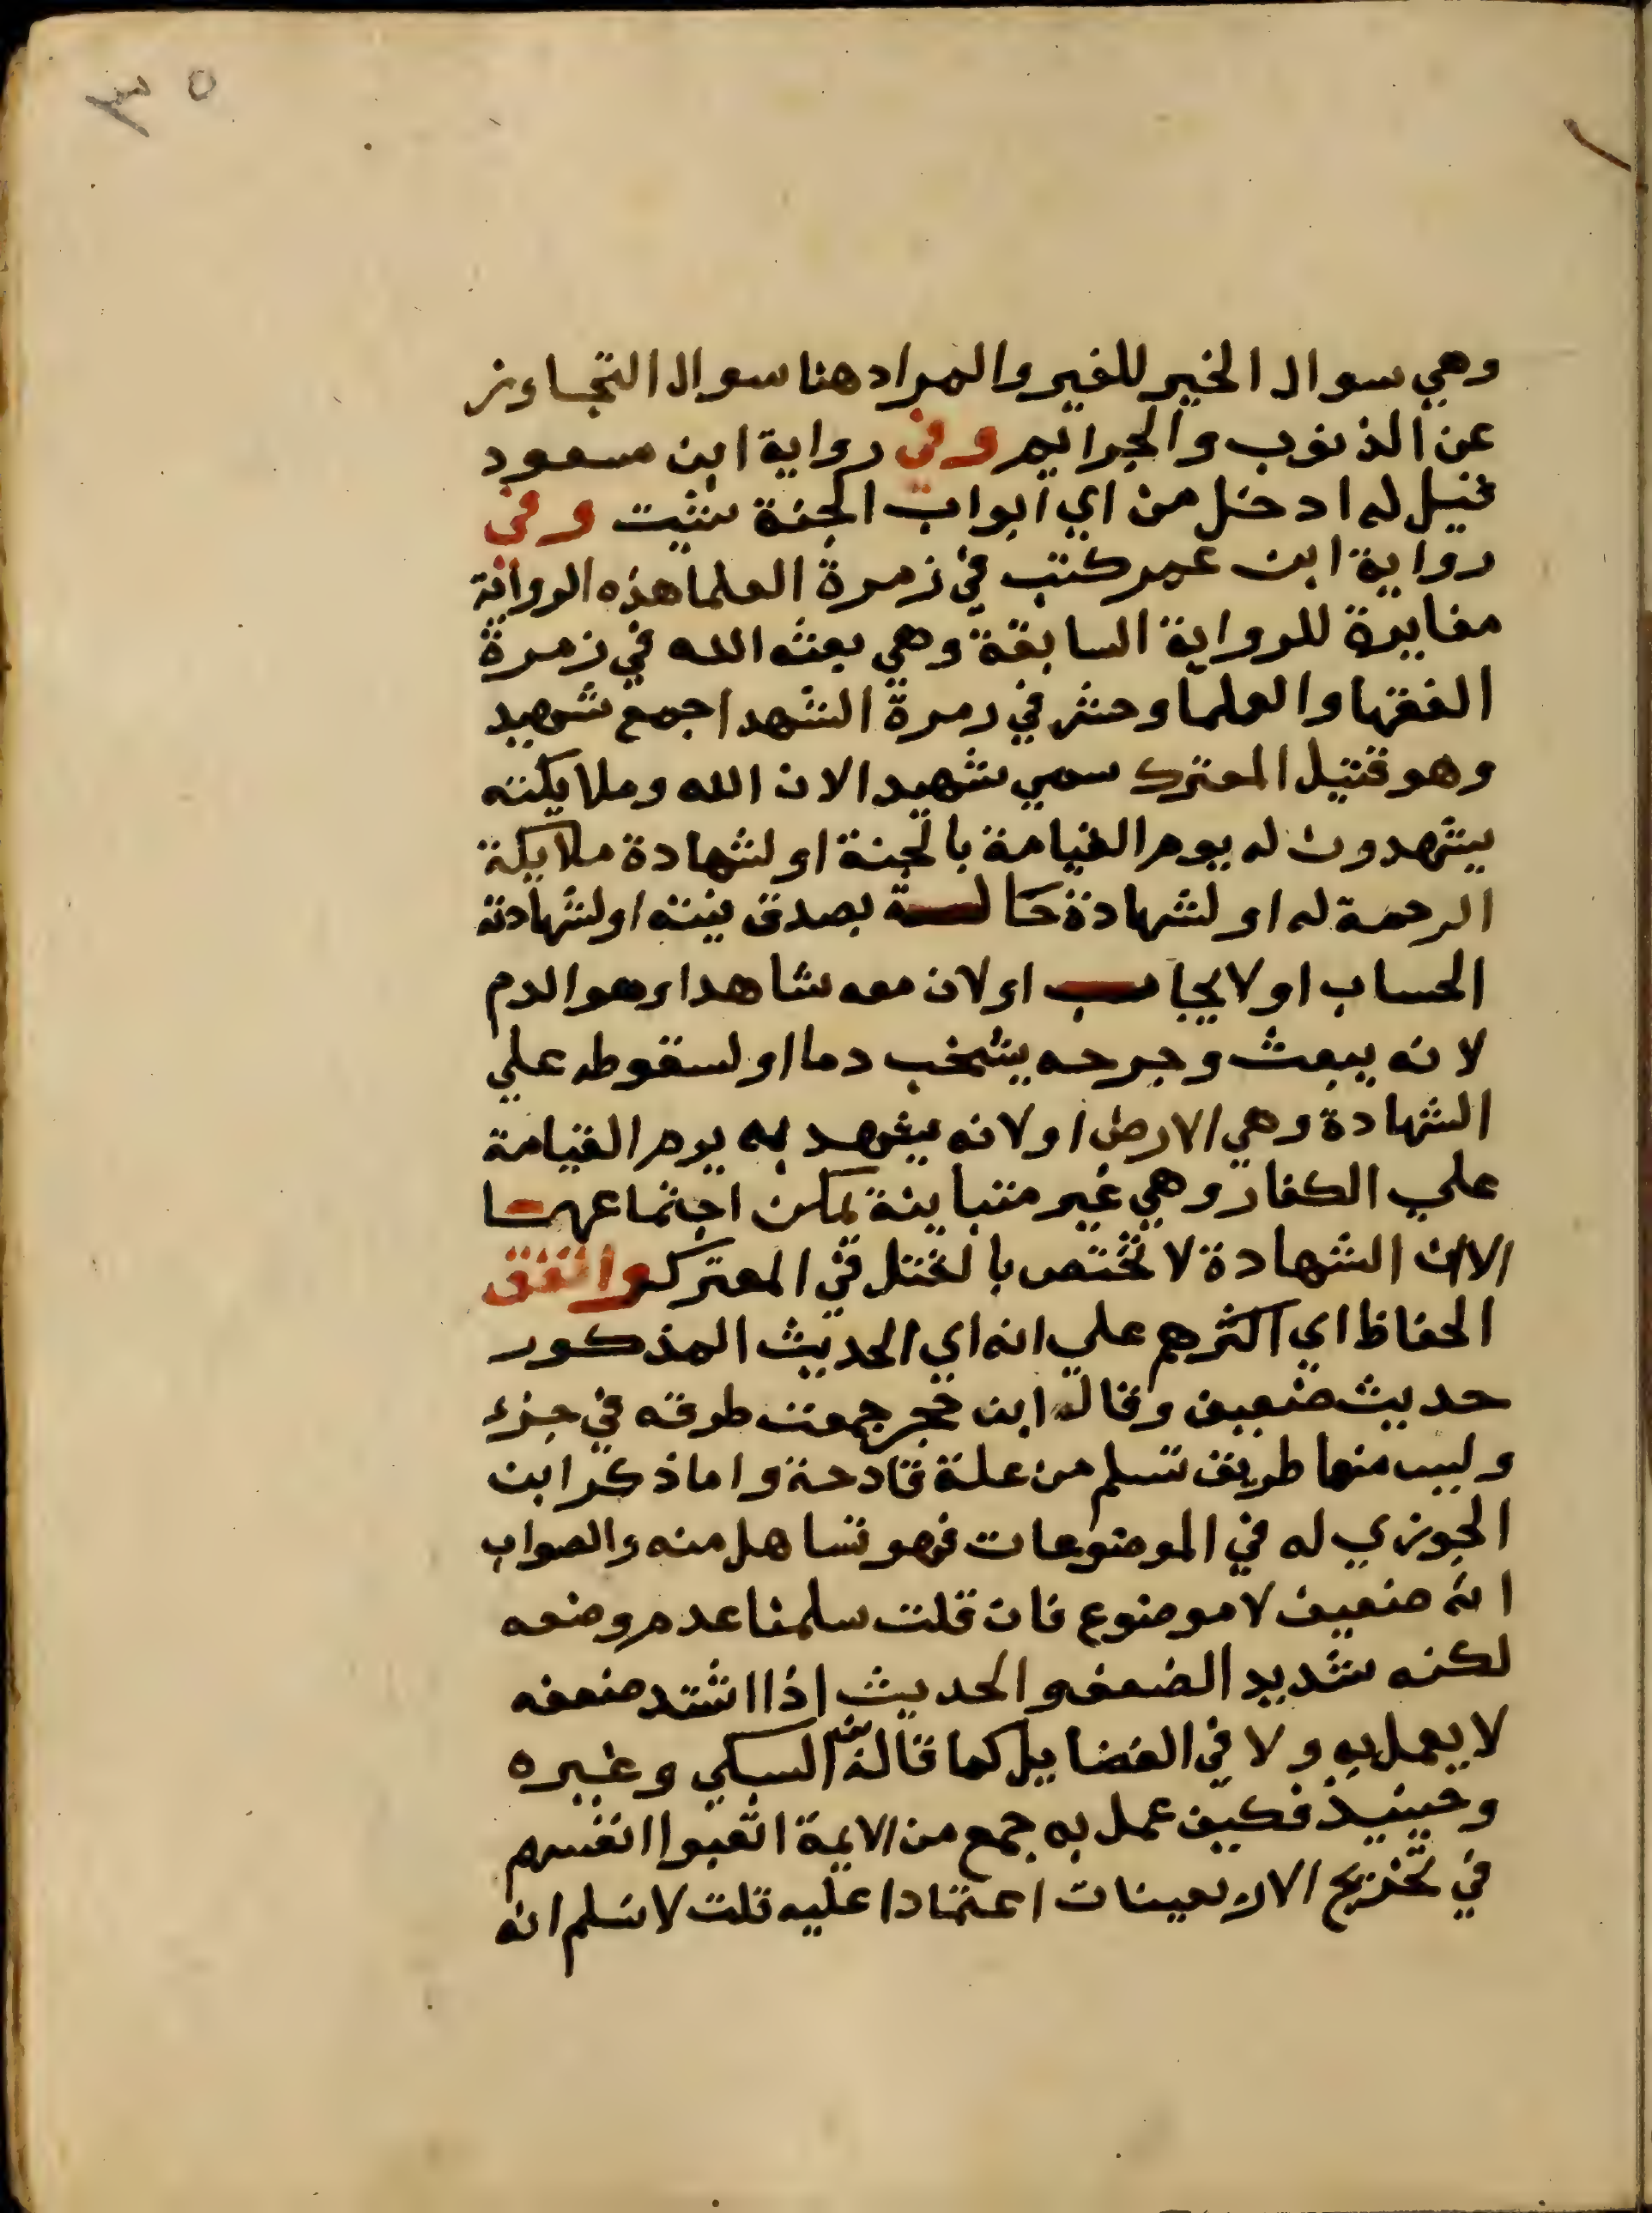 ٣٥
وهي سوال الخير للغير والمراد هنا سوال التجاوز
عن الذنوب والجرايم وفي رواية ابن مسعود
قيل له ادخل من اي ابواب الجنة شيت وفي
رواية ابن عمر كتب في زمرة العلما هذه الرواية
مغايرة للرواية السابقة وهي بعثه الله في زمرة
الفقها والعلما وحشر في زمرة الشهدا جمع شهيد
وهو قتيل المعترك سمي شهيدا لان الله وملايكته
يشهدون له يوم القيامة بالجنة او لشهادة ملايكة
الرحمة له او لشهادة حالة بصدق نيته او لشهادته
الحساب او لا يجاسب او لان معه شاهدا وهو الدم
لانه يبعث وجرحه يشخب دما او لسقوطه علي
الشهادة وهي الارض او لانه يشهد به يوم القيامة
علي الكفار وهي غير متباينة يمكن اجتماعها
الا ان الشهادة لا تختص بالقتل في المعترك واتفق
الحفاظ اي اكثرهم علي انه اي الحديث المذكور
حديث ضعيف وقال ابن حجر جمعت طرقه في جزء
وليس منها طريق تسلم من علة قادحة واما ذكر ابن
الجوزي له في الموضوعات فهو تساهل منه والصواب
انه ضعيف لا موضوع فان قلت سلمنا عدم وضعه
لكنه شديد الضعف والحديث اذا اشتد ضعفه
لا يعمل به ولا في الفضايل كما قاله السبكي وغيره
وحينيذ فكيف عمل به جمع من الايمة اتعبوا انفسهم
في تخريج الاربعينات اعتمادا عليه قلت لا نسلم انه